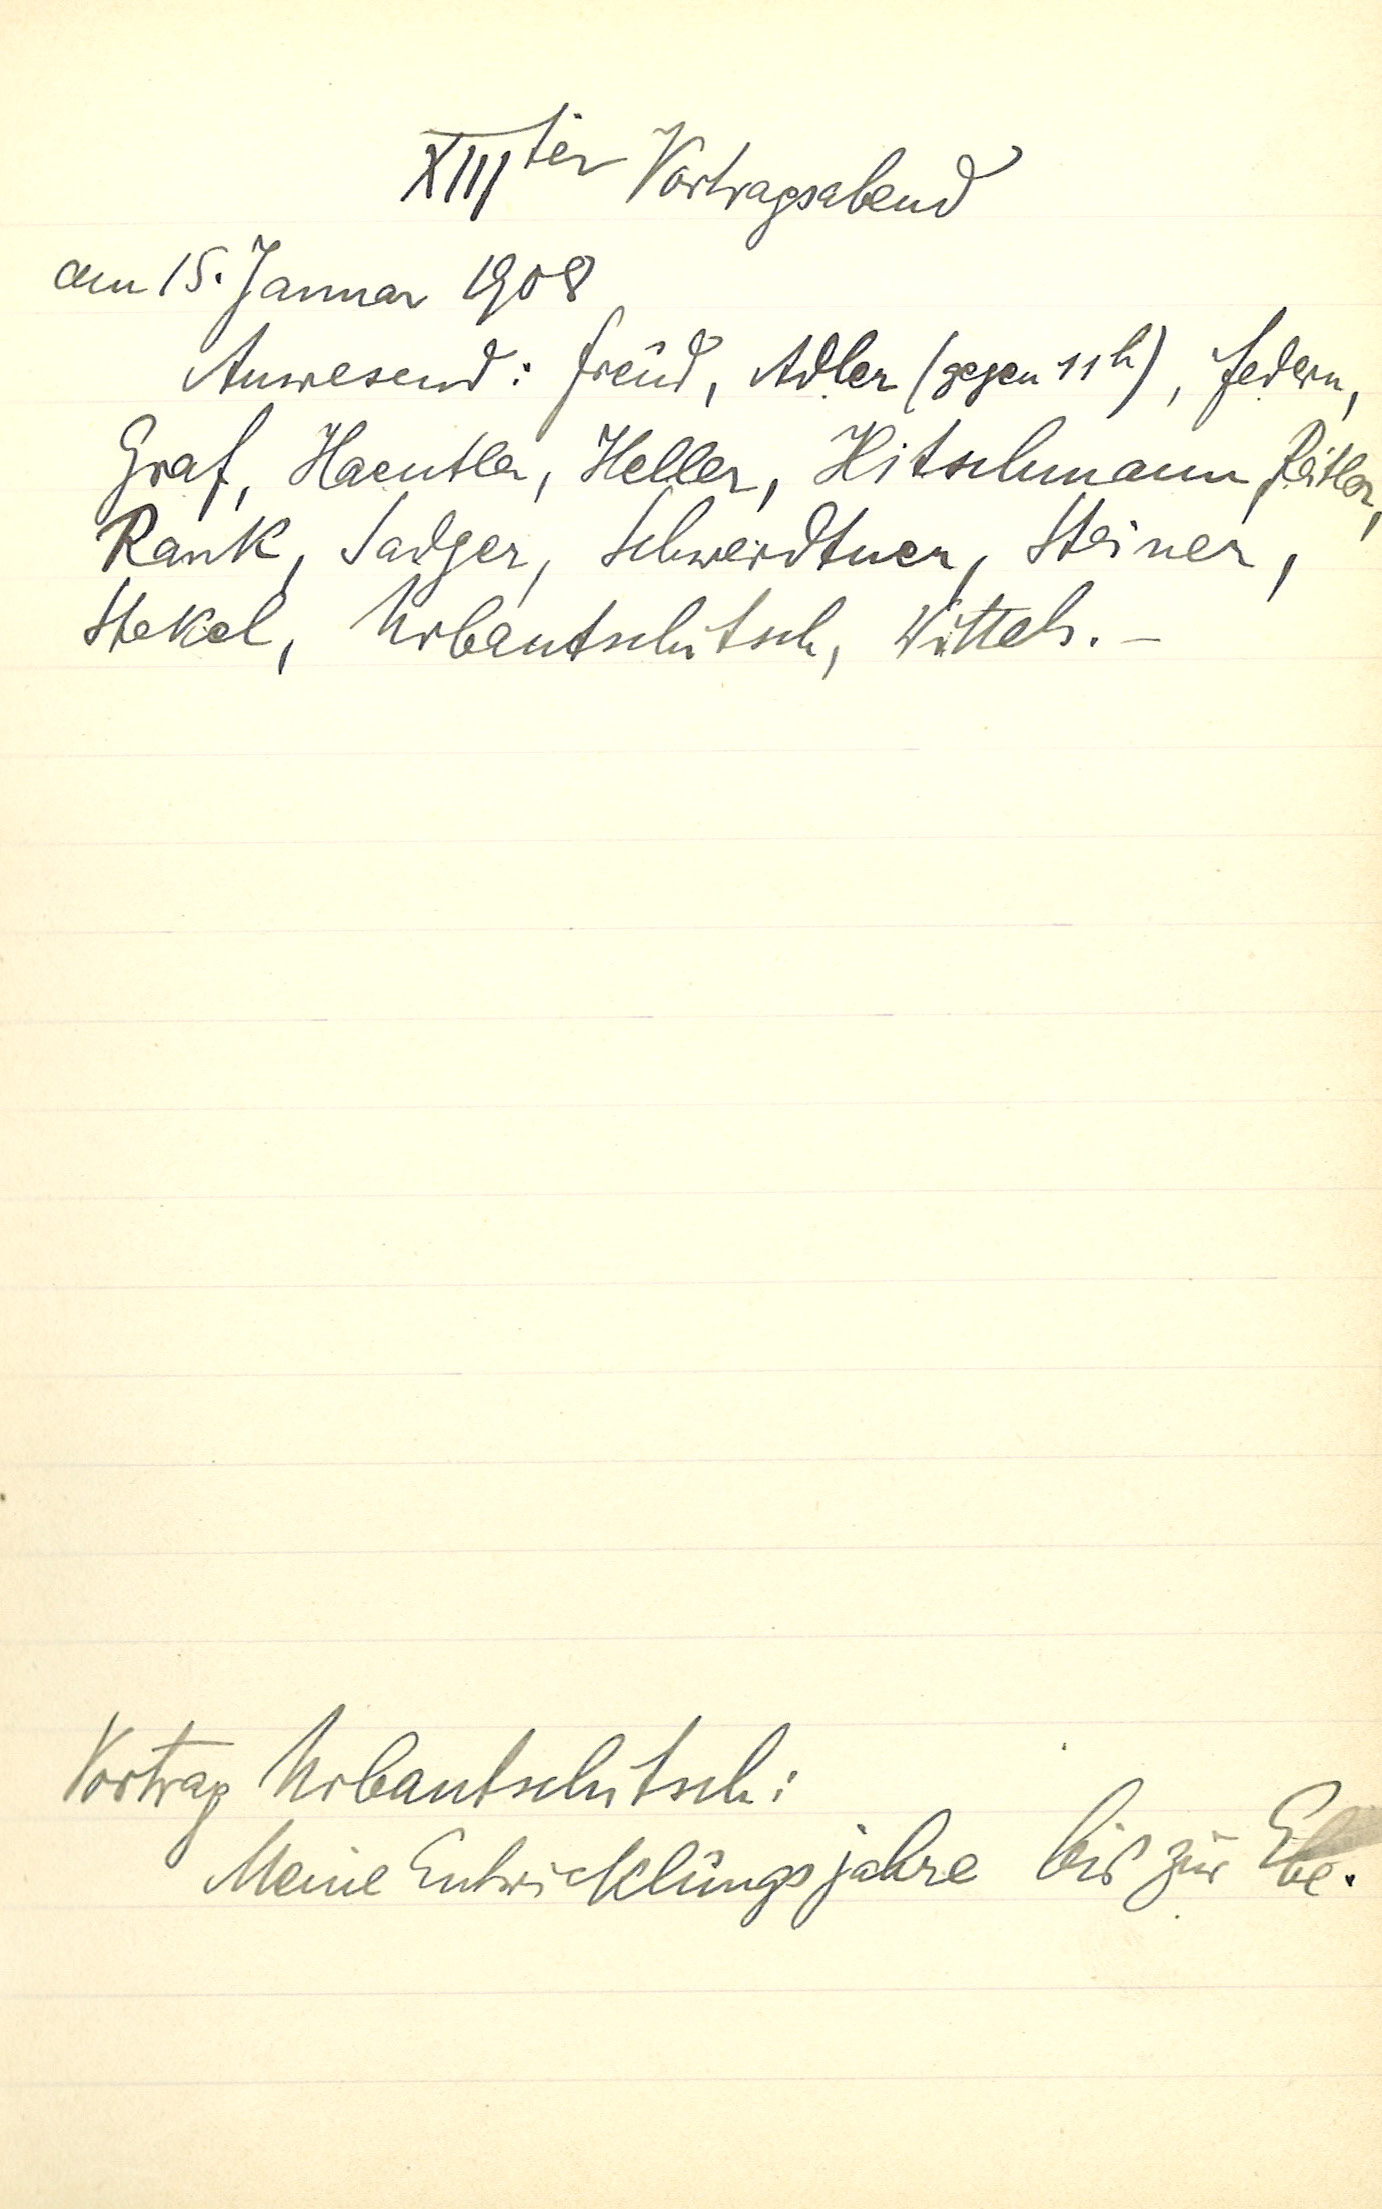 XIIIter Vortragsabend
am 15. Januar 1908
Anwesend: Freud, Adler (gegen 11h), Federn,
Graf, Haeutler, Heller, Hitschmann, Reitler,
Rank, Sadger, Schwerdtner, Steiner,
Stekel, Urbantschitsch, Wittels. –
Vortrag Urbantschitsch:
Meine Entwicklungsjahre bis zur Ehe.